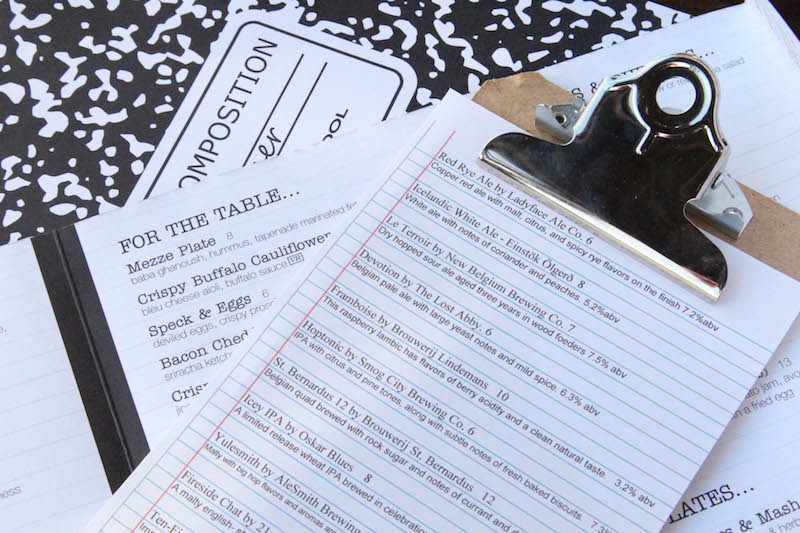 COMPOSITION
OOL
FOR THE TABLE...
Mezze Plate 8
baba ghanoush, hummus, tapenade marinated
Crispy Buffalo Cauliflower
bleu cheese aioli, buffalo sauce VR
Speck & Eggs 6
deviled eggs, crispy
Bacon Ched
sriracha ketch
Cris
Red Rye Ale by Ladyface Ale Co. 6
Copper red ale with malt, citrus, and spicy rye flavors on the finish 7.2%abv
Icelandic White Ale - Einstök Ölgerð 8
White ale with notes of coriander and peaches. 5.2%abv
Le Terroir by New Belgium Brewing Co. 7
Dry hopped sour ale aged three years in wood foeders 7.5% abv
Devotion by The Lost Abby. 6
Belgian pale ale with large yeast notes and mild spice. 6.3% abv
Framboise by Brouwerij Lindemans 10
This raspberry lambic has flavors of berry acidity and a clean natural taste.
Hoptonic by Smog City Brewing Co. 6
IPA with citrus and pine tones, along with subtle notes of fresh baked biscuits. 3.2% abv
St. Bernardus 12 by Brouwerij St. Bernardus 12
Belgian quad brewed with rock sugar, and notes of currant and 7.3%
Icey IPA by Oskar Blues 8
A limited release wheat IPA brewed in celebration
Yulesmith by AleSmith Brewing
Malty with big hop flavors and aromas
Fireside Chat by 21
A malty english-
Ten-Fi
salad
jam, avo
a fried egg
LATES...
s & Mash
& herb